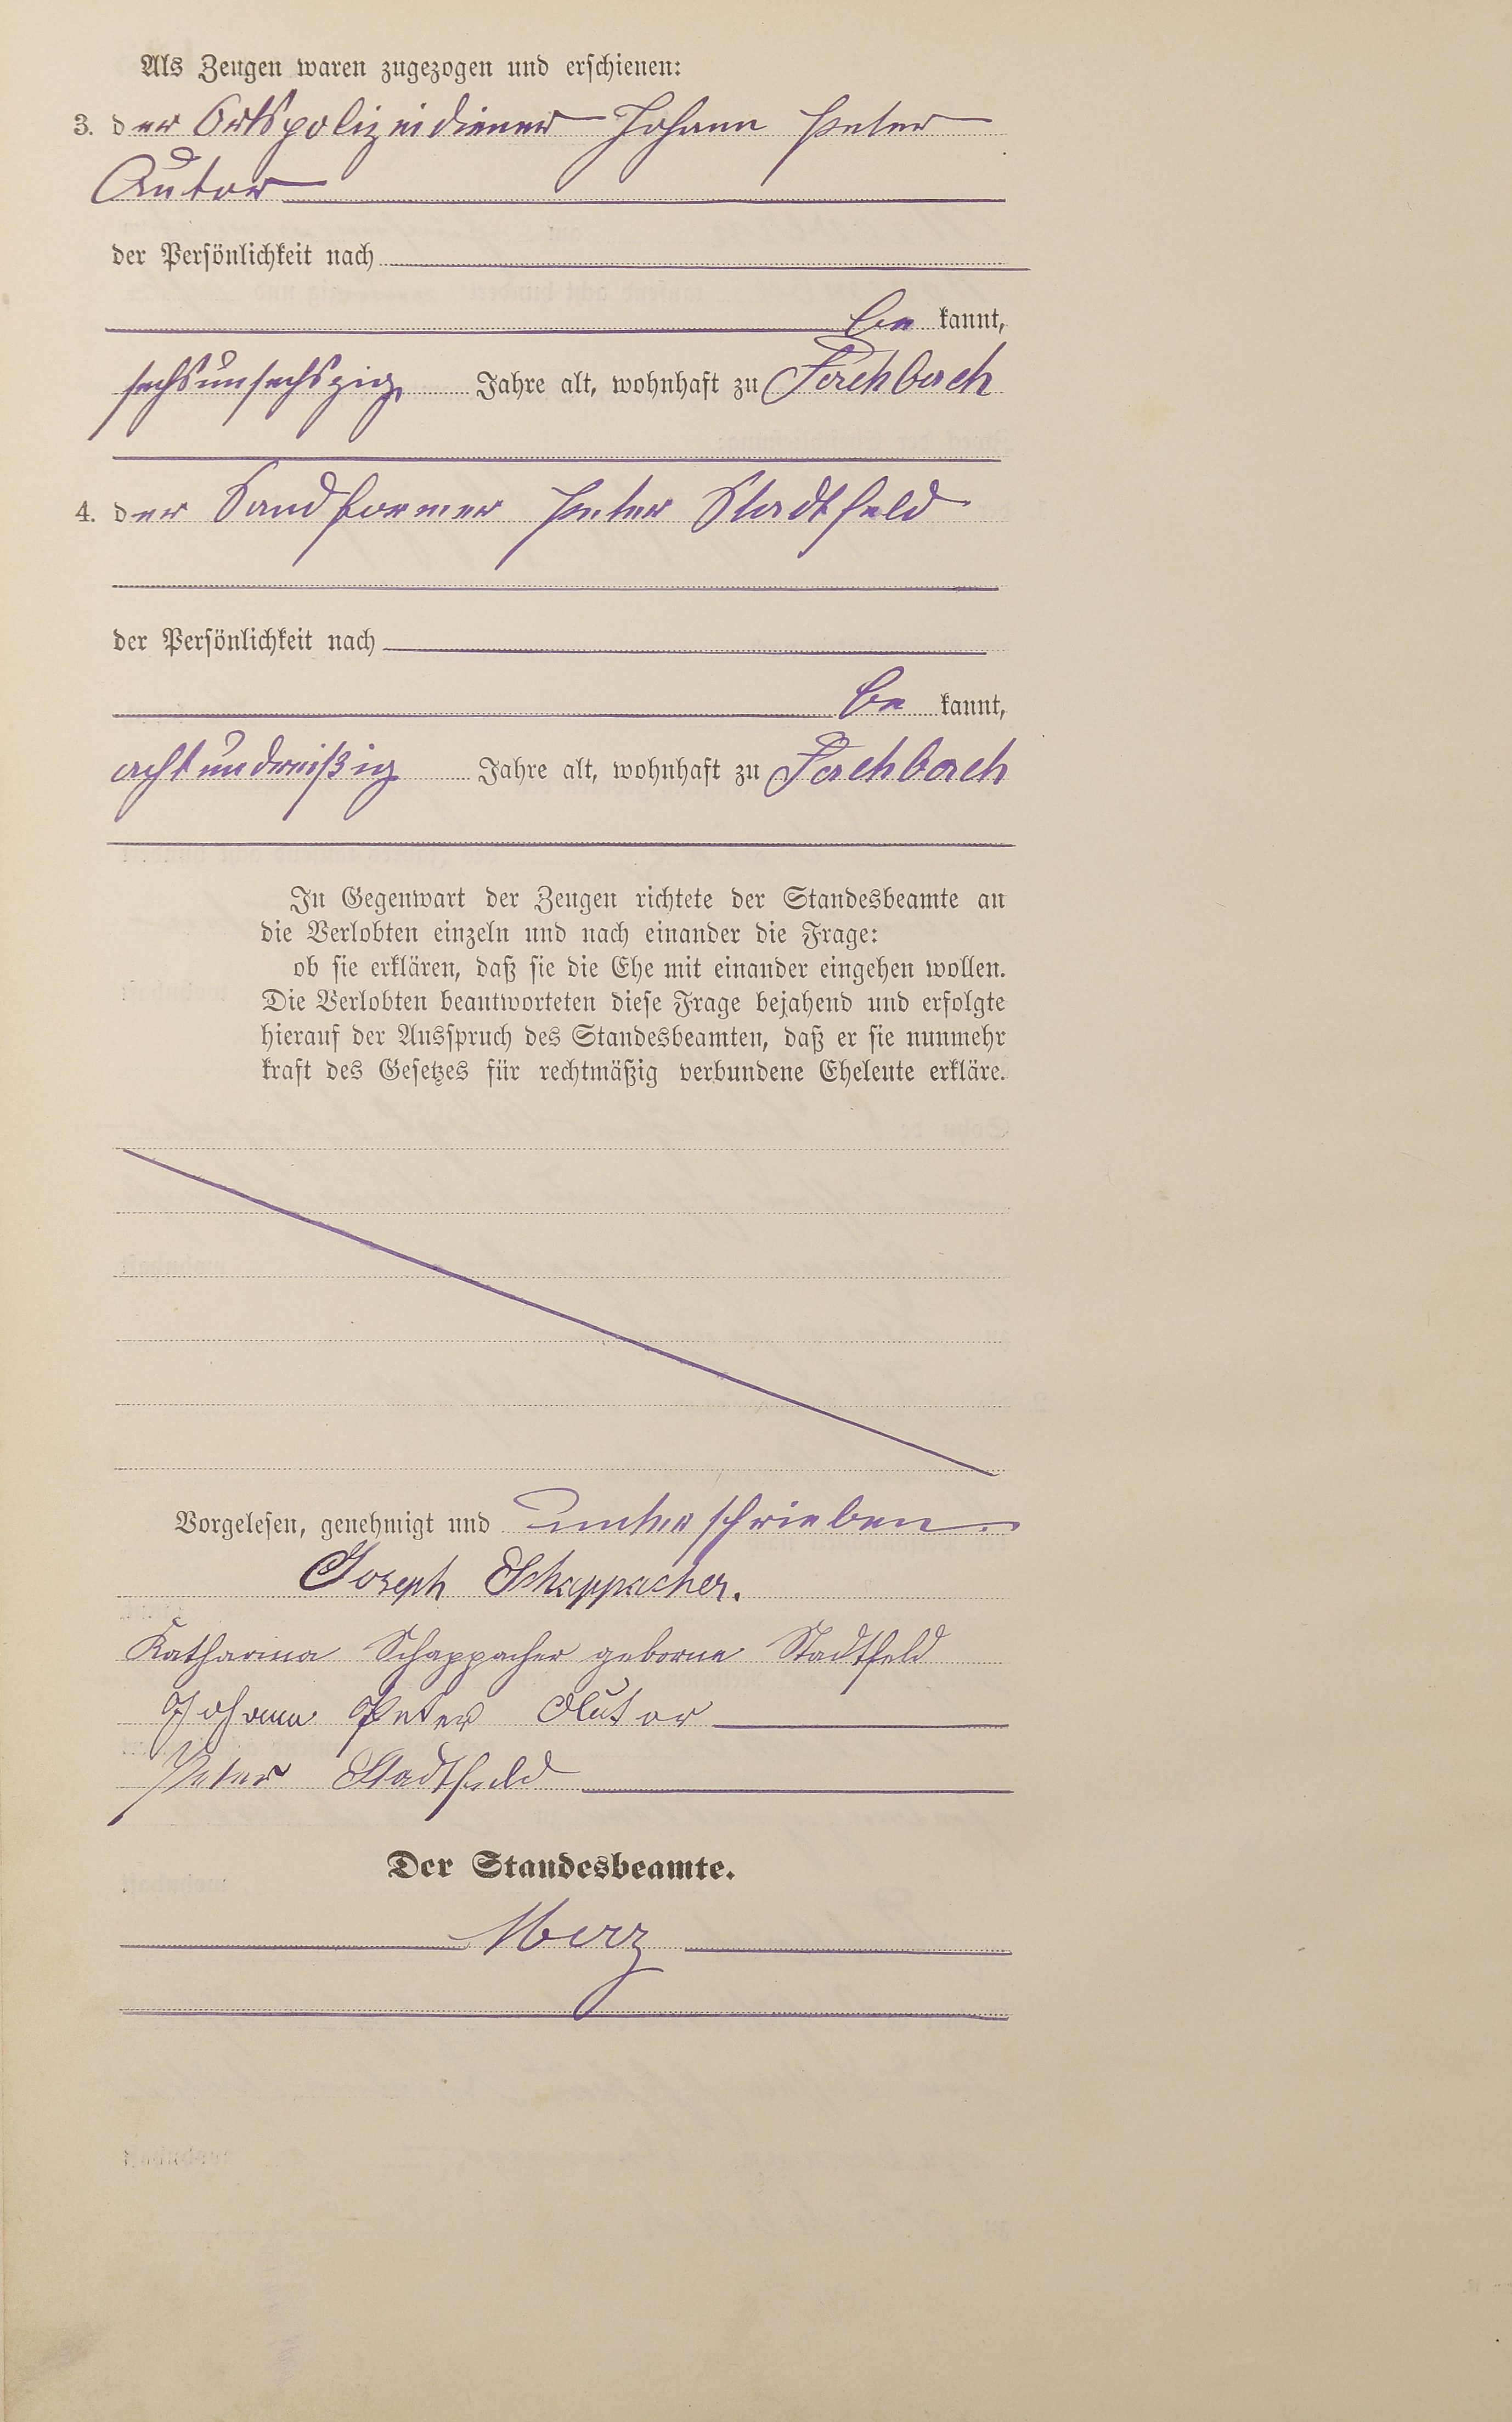 Als Zeugen waren zugezogen und erschienen:
3. der Ortspolizeidiener Johann Peter
Autor
der Persönlichkeit nach
be kannt,
sechsunsechszig Jahre alt, wohnhaft zu Fischbach
4. der Sandformer Peter Stadtfeld
der Persönlichkeit nach
be kannt,
achtundreißig Jahre alt, wohnhaft zu Fischbach
In Gegenwart der Zeugen richtete der Standesbeamte an
die Verlobten einzeln und nach einander die Frage:
ob sie erklären, daß sie die Ehe mit einander eingehen wollen.
Die Verlobten beantworteten diese Frage bejahend und erfolgte
hierauf der Ausspruch des Standesbeamten, daß er sie nunmehr
kraft des Gesetzes für rechtmäßig verbundene Eheleute erkläre.
Vorgelesen, genehmigt und unterschrieben.
Joseph Schappacher.
Katharina Schappacher geborne Stadtfeld
Johann Peter Autor
Peter Stadtfeld
Der Standesbeamte.
Merz